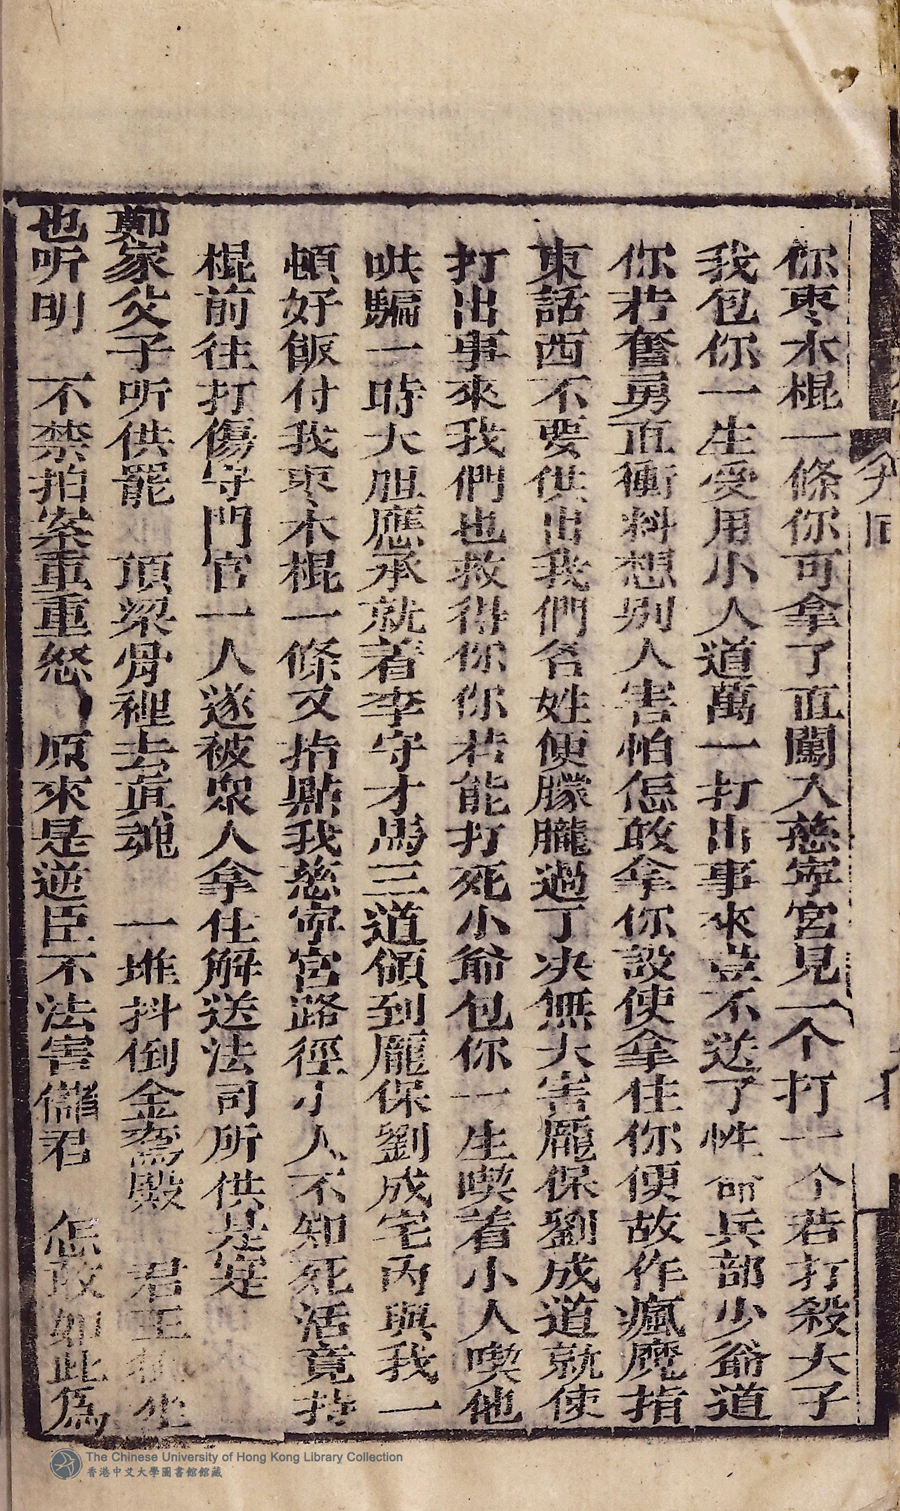 你枣木棍一條你可拿了直闖入慈寧宮見一个打一个若打殺大子
我包你一生受用小人道萬一打出事來豈不送了性命兵部少爺道
你若奮勇直衝料想别人害怕怎敢拿你設使拿住你便故作瘋魔指
東話西不要供出我們名姓便朦朧過了决無大害龐保劉成道就使
打出事來我們也救得你你若能打死小爺包你一生喫着小人喫他
哄騙一時大胆應承就着李守才馬三道領到龐保劉成宅內與我一
頓好飯付我枣木棍一條又指點我慈宁宮路徑小人不知死活竟持
棍前往打傷守門官一人遂被衆人拿住解送法司所供是寔
鄭家父子听供罷 頂梁骨裡去真魂 一堆抖倒金鸞殿 君王 坐
也听明 不禁拍案重重怒 原來是逆臣不法害儲君 怎敢如此為
九回
The Chinese University of Hong Kong Library Collection
香港中文大學圖書館館藏